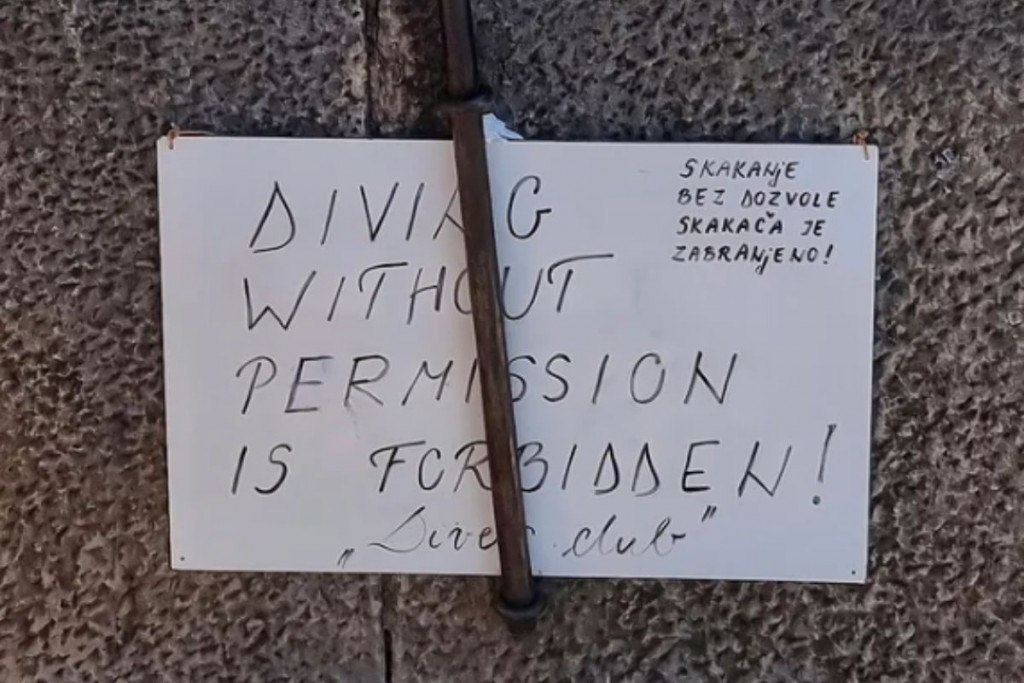 DIVING
WITHOUT
PERMISSION
IS FORBIDDEN!
„Diver club"
SKAKANjE
BEZ DOZVOLE
SKAKAČA JE
ZABRANjENO!